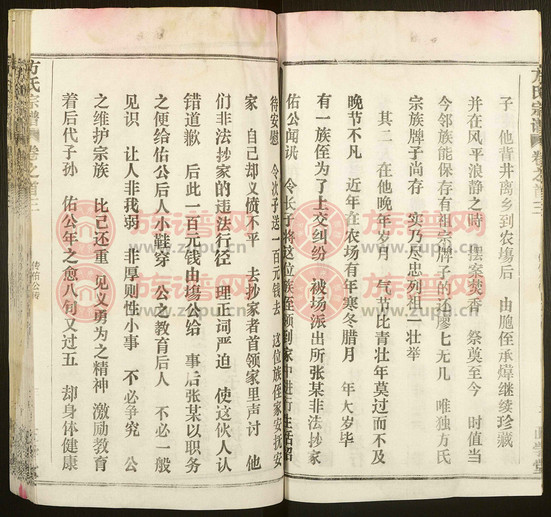 方氏宗谱
卷之首三
子 他背井离乡到农塲后 由胞侄承煒继续珍藏
并在风平浪静之時 摆案焚香 祭奠至今 时值当
今邻族能保存有祖宗牌子的还廖七无几 唯独方氏
宗族牌子尚存 实乃尽忠列祖一壮举
其二 在他晚年岁月 气节比青壮年莫过而不及
晚节不凡 近年在农场有年寒冬腊月 年大岁毕
有一族侄为了上交纠纷 被场派出所张某非法抄家
佑公闻讯 令长子将这位族侄领到家中进行生活招
待安慰 令次子送一百元钱去 这位族侄家安抚安
家 自己却义愤不平 去抄家者首领家里声讨 他
们非法抄家的违法行径 理正词严迫 使这伙人认
错道歉 后此一百元钱由塲公给 事后张某以职务
之便给佑公后人小鞋穿 公之教育后人 不必一般
见识 让人非我弱 非厚则性小事 不必争究 公
之维护宗族 比己还重 见义勇为之精神 激励教育
着后代子孙 佑公年之愈八旬又过五 却身体健康
方氏宗谱
卷之首三
传佑公传
族谱网
www.zupu.cn
族谱网
www.zupu.cn
族谱网
www.zupu.cn
族谱网
www.zupu.cn